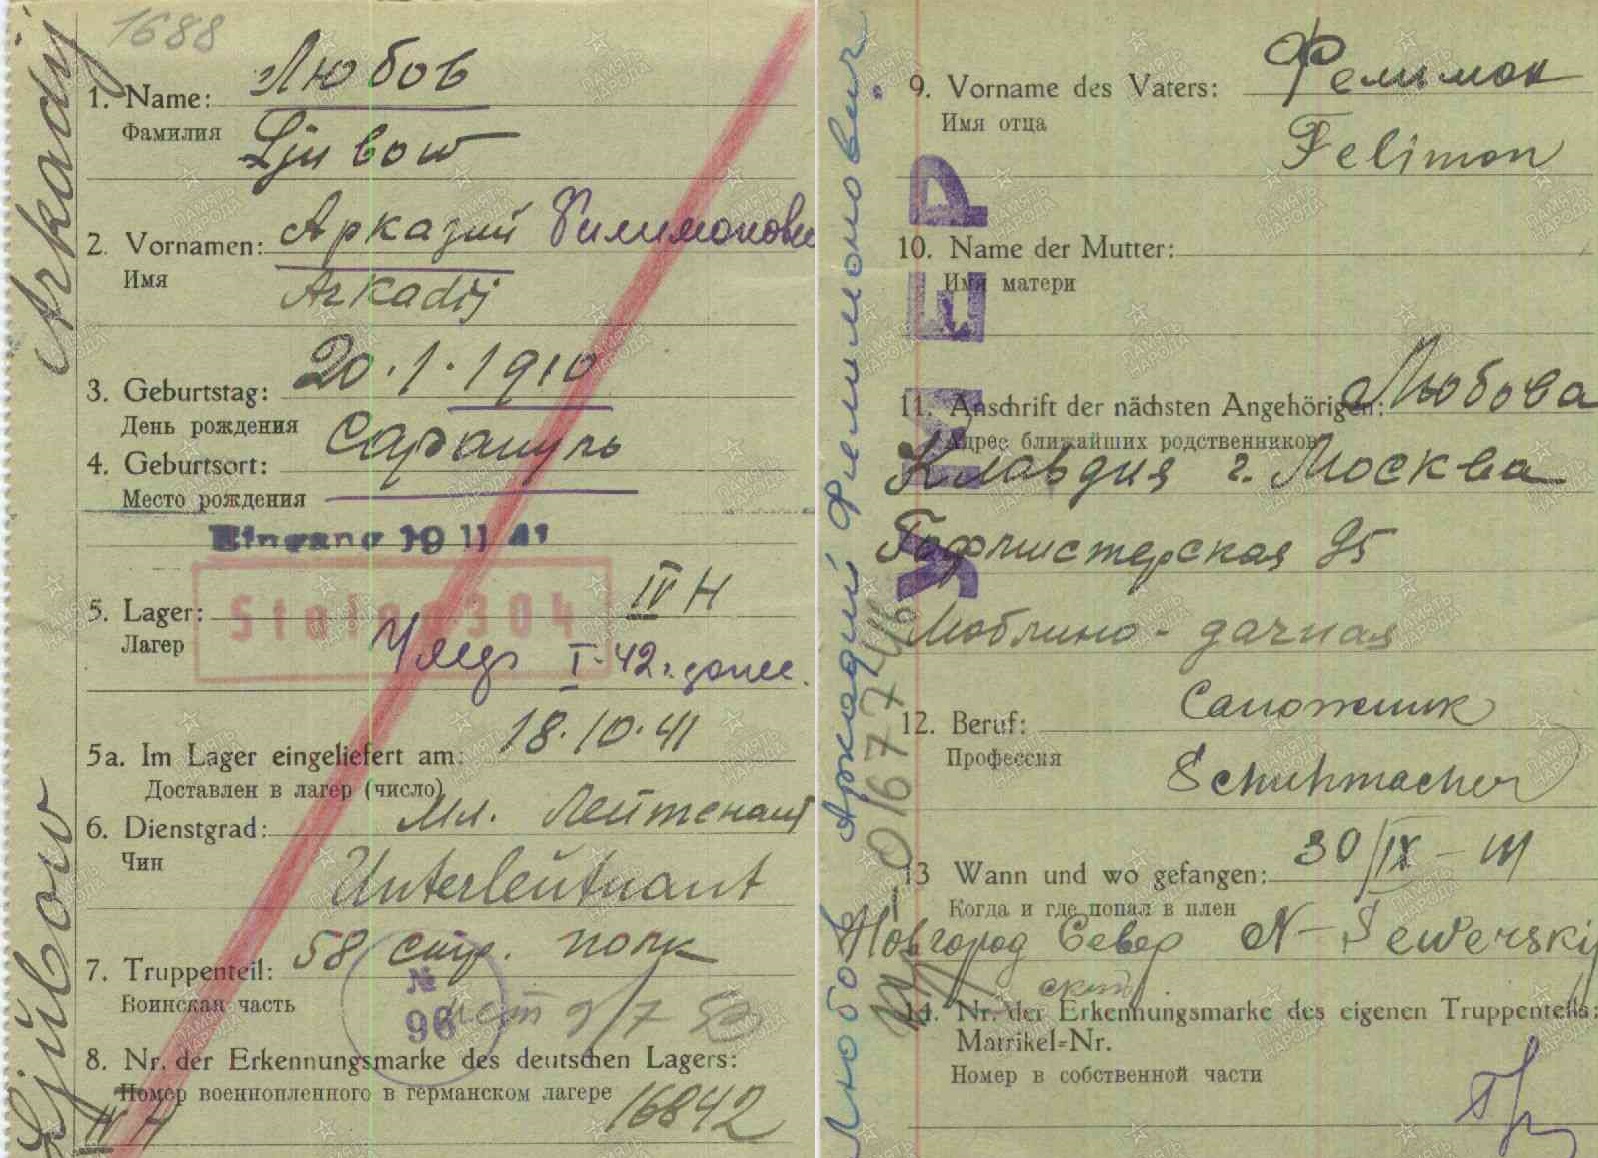 1688
Arkadij
Ljubow
1. Name: Любов
Фамилия
Ljubow
2. Vornamen: Аркадий Филимонович
Имя
Arkadij
3. Geburtstag: 20.1.1910
День рождения
4. Geburtsort: Сарапуль
Место рождения
Eingang 19 11 41
5. Lager: IV H
Лагер
Stalag 304
I-42г.
5a. Im Lager eingeliefert am: 18.10.41
Доставлен в лагер (число)
6. Dienstgrad: Мл. Лейтенант
Чин
Unterleutnant
7. Truppenteil: 58 стр. полк
Воинская часть
№
96
8. Nr. der Erkennungsmarke des deutschen Lagers:
Номер военнопленного в германском лагере
IV H 16842
Любов Аркадий Фелимонович
УМЕР
9. Vorname des Vaters: Фелимон
Имя отца
Felimon
10. Name der Mutter:
Имя матери
11. Anschrift der nächsten Angehörigen: Любова
Адрес ближайших родственников
Клавдия г. Москва
95
Люблино - дачная
12. Beruf: Сапожник
Профессия
Schuhmacher
13 Wann und wo gefangen: 30/IX - 41
Когда и где попал в плен
Новгород Север N-Sewerskij
ский
14. Nr. der Erkennungsmarke des eigenen Truppenteils:
Matrikel-Nr.
Номер в собственной части